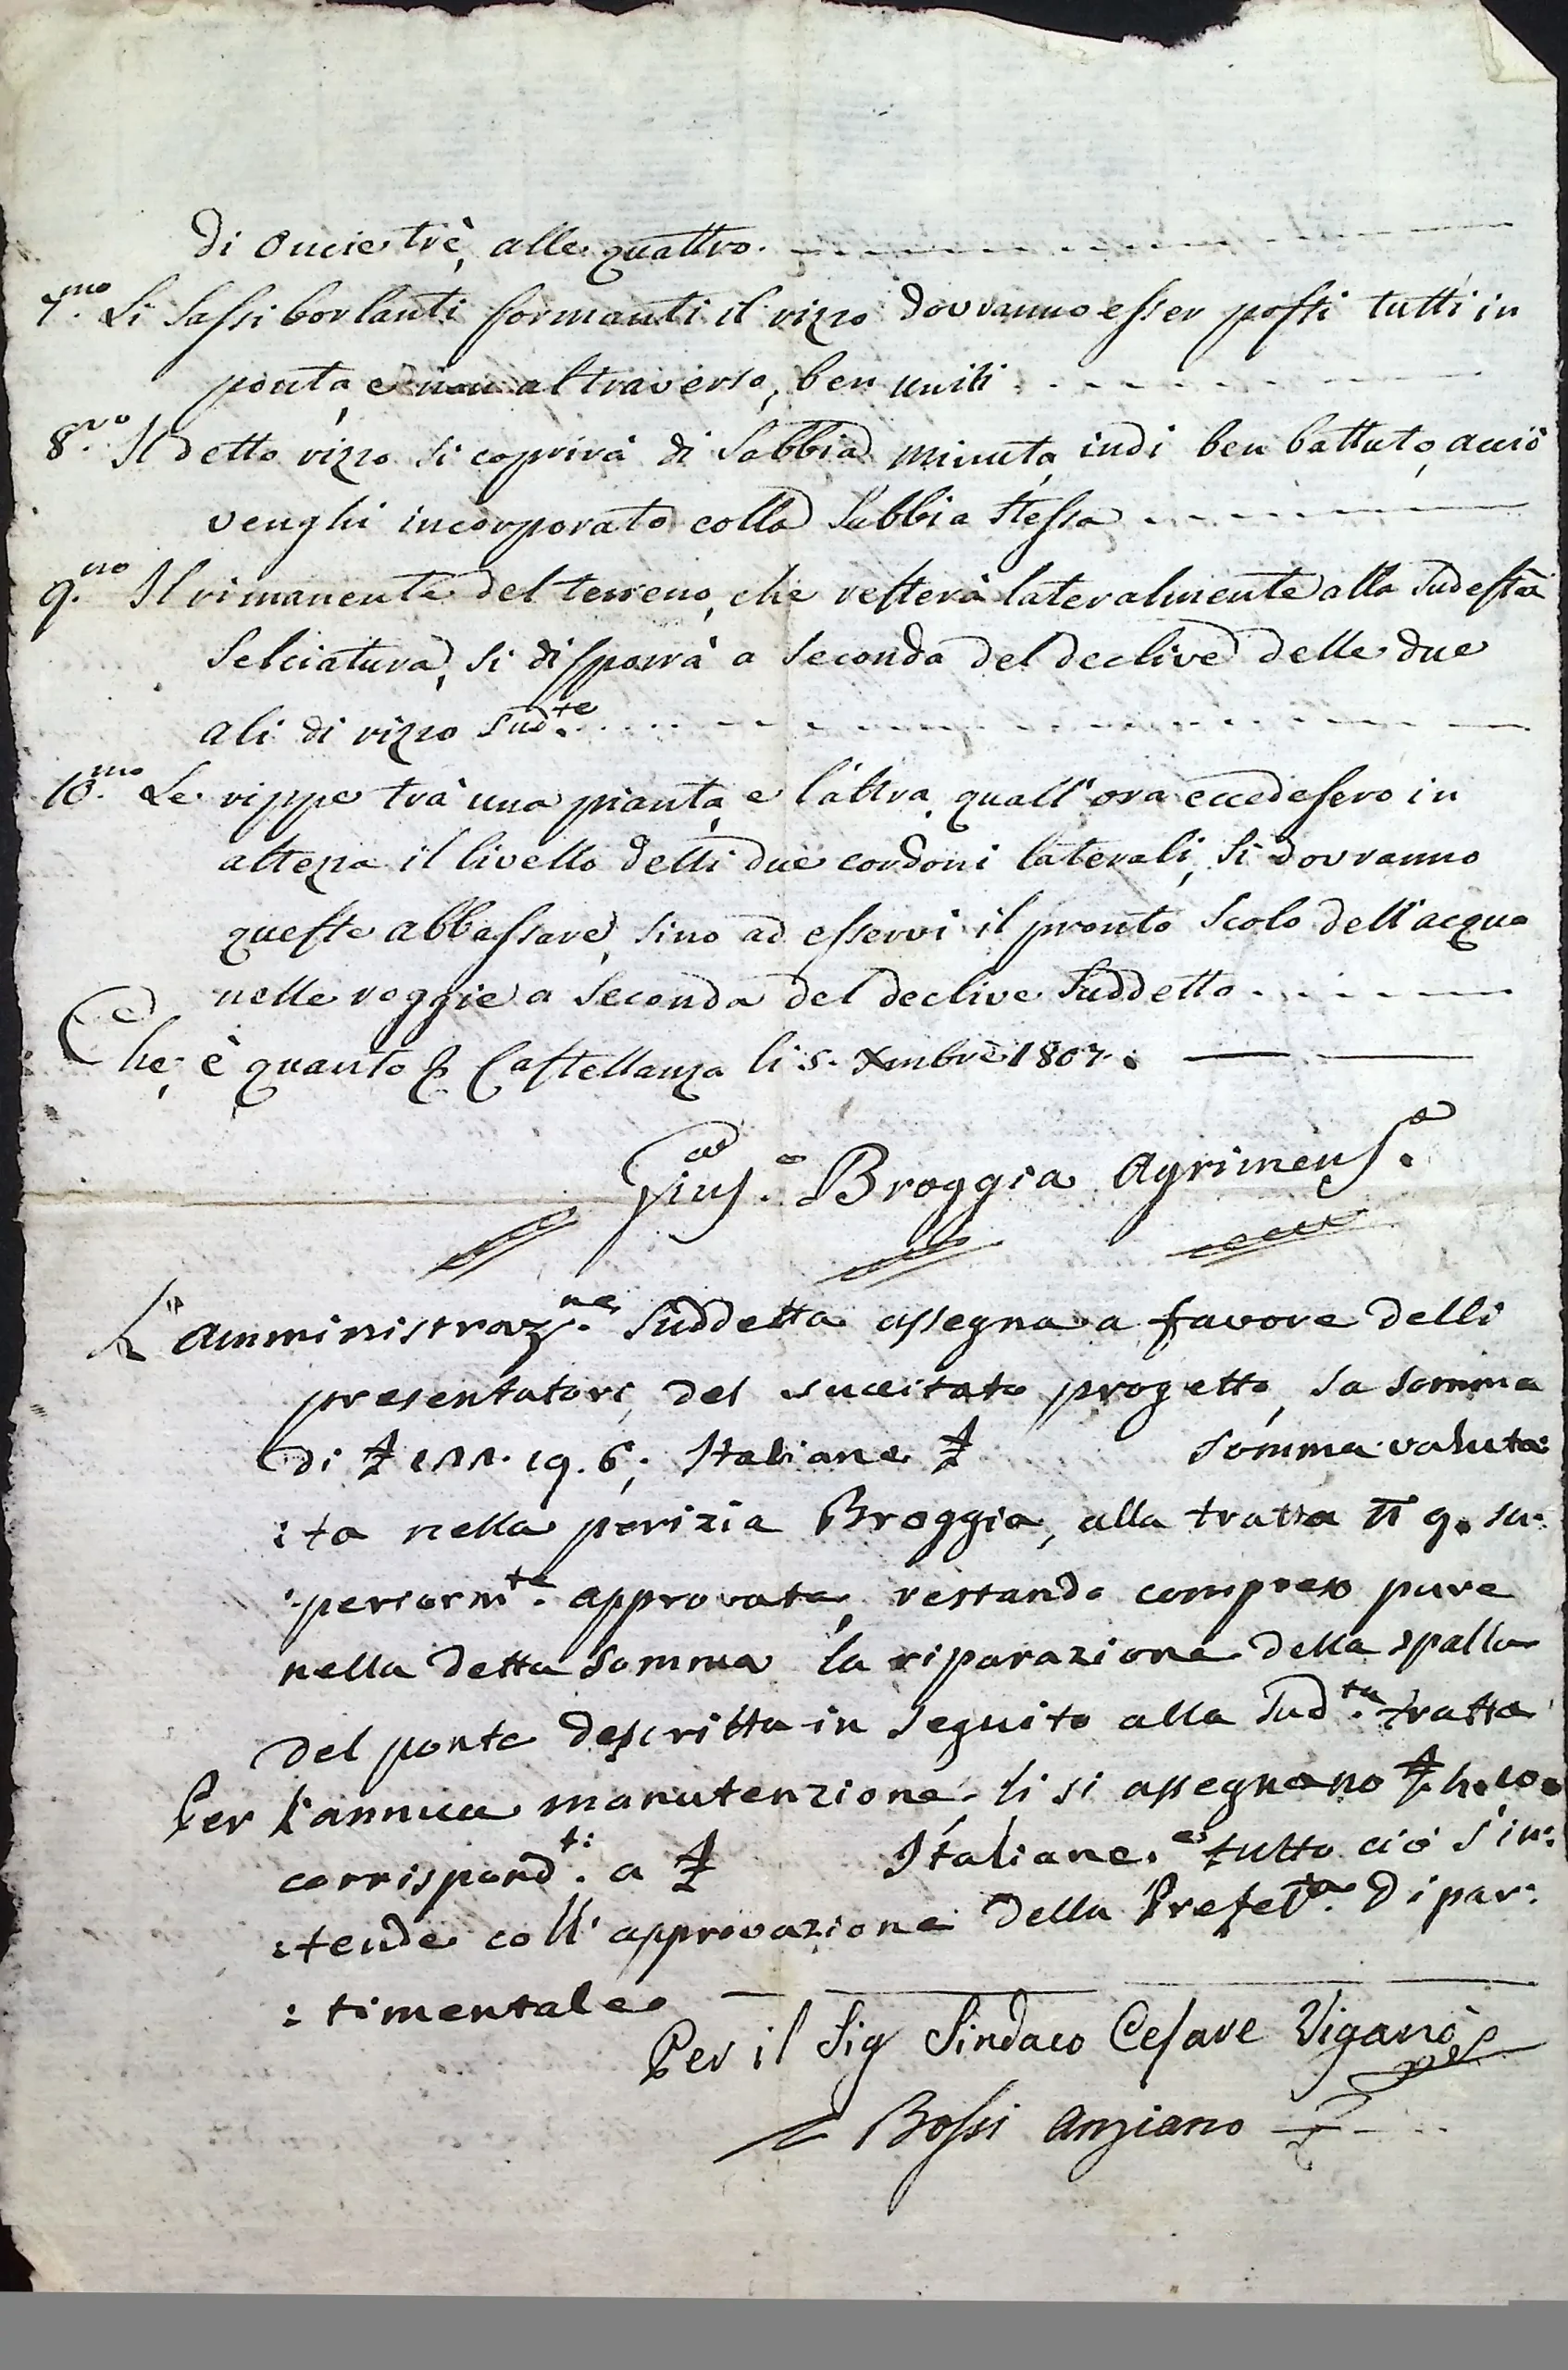 di Oncie trè, alle quattro.
7.mo Li Sassi borlanti formanti il rizzo dovranno esser posti tutti in
ponta, e non al traverso, ben uniti.
8.vo Il detto rizzo si coprirà di Sabbia minuta, indi ben battuto, acciò
venghi incorporato colla Sabbia stessa
9.no Il rimanente del terreno, che resterà lateralmente alla Sudestà
Selciatura, si disporrà a seconda del declive delle due
ali di rizzo Sud.te
10.mo Le rippe trà una pianta, e l'altra, quall'ora eccedessero in
altezza il livello delli due cordoni laterali, Si dovranno
queste abbassare, sino ad esservi il pronto Scolo dell'acqua
nelle roggie a Seconda del declive Suddetto.
Che, è quanto & Castellanza li 5. Xmbre 1807.
Gius.e Broggia Agrimens.e
L'amministraz.ne Suddetta assegna a favore delli
presentatori, del succitato progetto, la somma
di £ 19. 6; Italiane £ somma valuta:
:ta nella perizia Broggia, alla tratta n 9. su:
:periorm.te approvata, restando compreso pure
nella detta Somma la riparazione della spalla
del ponte descritta in seguito alla Sud.ta tratta
Per l'annua manutenzione, li si assegnano £ 4. 10.
corrispond.ti a £ Italiane. e tutto ciò s'in:
:tende coll'approvazione della Prefet.a Dipar:
:timentale.
Per il Sig Sindaco Cesare Viganò
Bossi Anziano